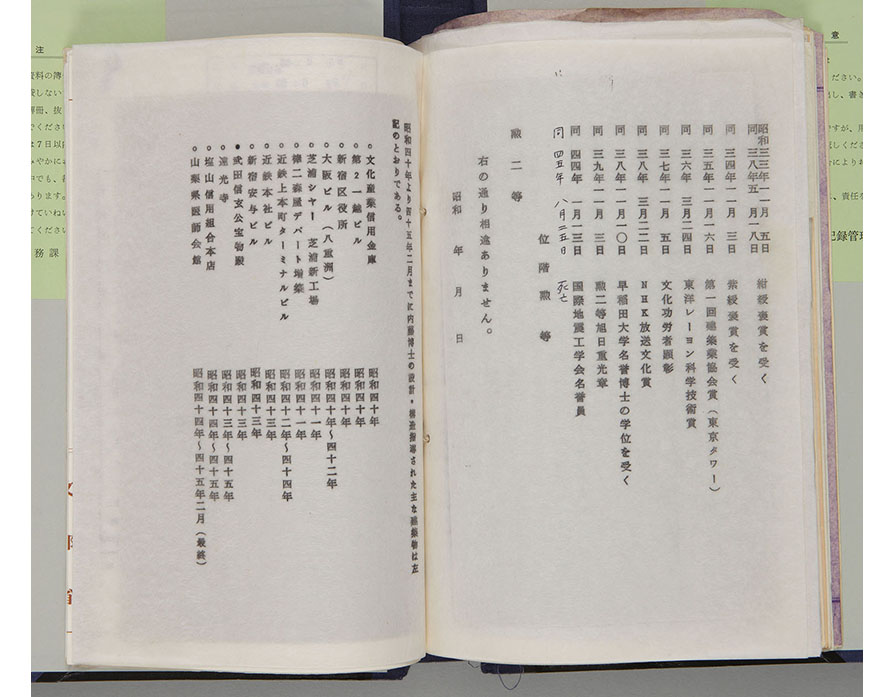 昭和三三年一一月 五日 紺綬褒賞を受く
同 三八年五 月一八日
同 三四年一一月 三日 紫綬褒賞を受く
同 三五年一一月一六日 第一回建築業協会賞(東京タワー)
同 三六年 三月二四日 東洋レーヨン科学技術賞
同 三七年一一月 五日 文化功労者顕彰
同 三八年 三月二二日 NHK放送文化賞
同 三八年一一月一〇日 早稲田大学名誉博士の学位を受く
同 三九年一一月 三日 勲二等旭日重光章
同 四四年 一月一三日 国際地震工学会名誉員
同 四五年 八月二五日 死亡
勲二等 位階勲等
右の通り相違ありません。
昭和 年 月 日
昭和四十年より四十五年二月までに内藤博士の設計・構造指導された主な建築物は左
記のとおりである。
○文化産業信用金庫 昭和四十年
○第2一越ビル 昭和四十年
○新宿区役所 昭和四十年
○大阪ビル(八重洲) 昭和四十年~四十二年
○芝浦シヤー 芝浦新工場 昭和四十一年
○棒二森屋デパート増築 昭和四十一年
○近鉄上本町ターミナルビル 昭和四十二年~四十四年
○近鉄本社ビル 昭和四十三年
○新宿安与ビル 昭和四十三年
●武田信玄公宝物殿 昭和四十三年
○遠光寺 昭和四十三年~四十五年
○塩山信用組合本店 昭和四十四年~四十五年
○山梨県医師会館 昭和四十四年~四十五年二月(最終)
注
務課
意
記録管理